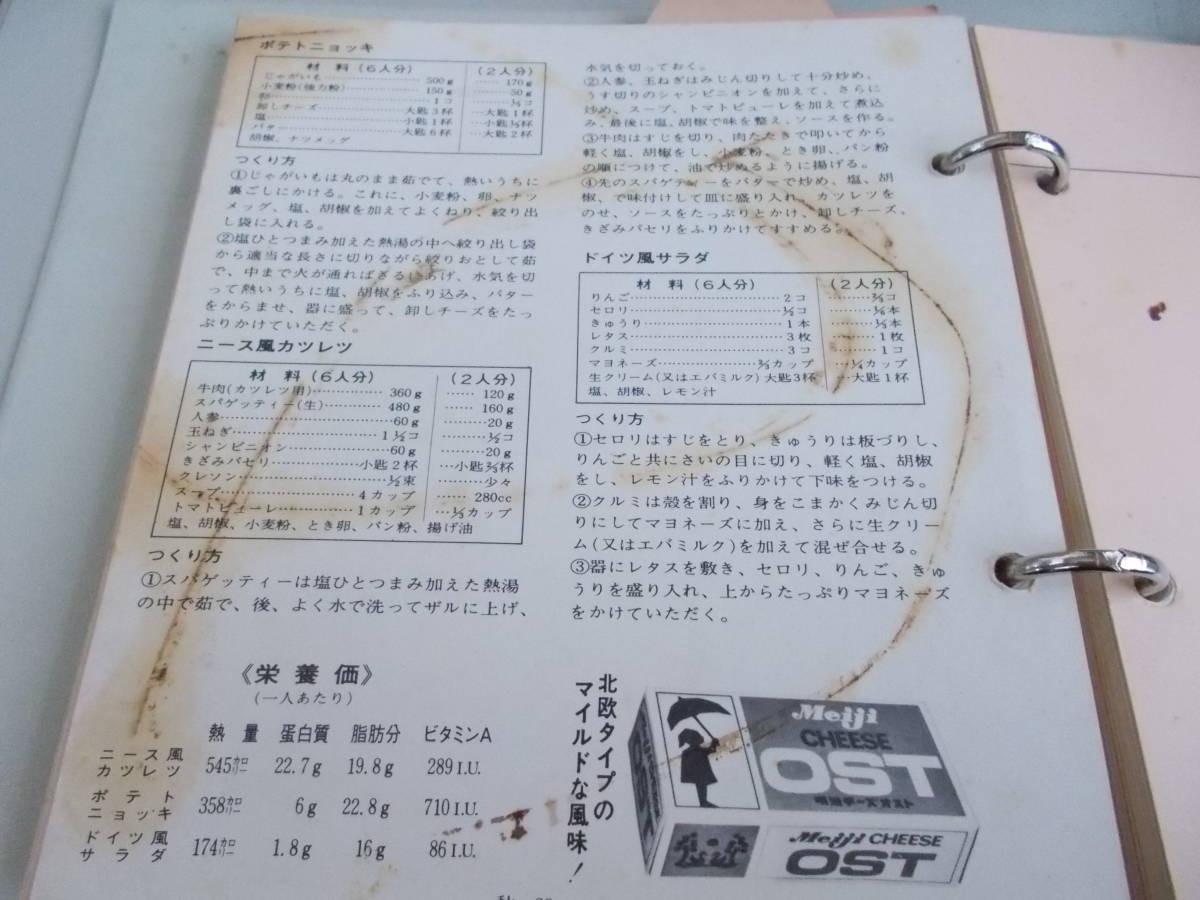 ポテトニョッキ
材料(6人分) (2人分)
じゃがいも……500g ……170g
小麦粉(強力粉)……150g ……50g
卵……1コ ……⅓コ
卸しチーズ……大匙3杯 …大匙1杯
塩……小匙1杯 …小匙⅓杯
バター……大匙6杯 …大匙2杯
胡椒、ナツメッグ
つくり方
①じゃがいもは丸のまま茹でて、熱いうちに
裏ごしにかける。これに、小麦粉、卵、ナツ
メッグ、塩、胡椒を加えてよくねり、絞り出
し袋に入れる。
②塩ひとつまみ加えた熱湯の中へ絞り出し袋
から適当な長さに切りながら絞りおとして茹
で、中まで火が通ればざるにあげ、水気を切
って熱いうちに塩、胡椒をふり込み、バター
をからませ、器に盛って、卸しチーズをたっ
ぷりかけていただく。
ニース風カツレツ
材料(6人分) (2人分)
牛肉(カツレツ用)……360g ……120g
スパゲッティー(生)……480g ……160g
人参……60g ……20g
玉ねぎ……1½コ ……½コ
シャンピニオン……60g ……20g
きざみパセリ……小匙2杯 …小匙⅔杯
クレソン……½束 ……少々
スープ……4カップ ……280cc
トマトピューレ……1カップ …⅓カップ
塩、胡椒、小麦粉、とき卵、パン粉、揚げ油
つくり方
①スパゲッティーは塩ひとつまみ加えた熱湯
の中で茹で、後、よく水で洗ってザルに上げ、
水気を切っておく。
②人参、玉ねぎはみじん切りして十分炒め、
うす切りのシャンピニオンを加えて、さらに
炒め、スープ、トマトピューレを加えて煮込
み、最後に塩、胡椒で味を整え、ソースを作る。
③牛肉はすじを切り、肉たたきで叩いてから
軽く塩、胡椒をし、小麦粉、とき卵、パン粉
の順につけて、油で炒めるように揚げる。
④先のスパゲティーをバターで炒め、塩、胡
椒、で味付けして皿に盛り入れ、カツレツを
のせ、ソースをたっぷりとかけ、卸しチーズ、
きざみパセリをふりかけてすすめる。
ドイツ風サラダ
材料(6人分) (2人分)
りんご……2コ ……⅔コ
セロリ……½コ ……⅙本
きゅうり……1本 ……⅓本
レタス……3枚 ……1枚
クルミ……3コ ……1コ
マヨネーズ……⅔カップ …¼カップ
生クリーム(又はエバミルク)大匙3杯 …大匙1杯
塩、胡椒、レモン汁
つくり方
①セロリはすじをとり、きゅうりは板づりし、
りんごと共にさいの目に切り、軽く塩、胡椒
をし、レモン汁をふりかけて下味をつける。
②クルミは殻を割り、身をこまかくみじん切
りにしてマヨネーズに加え、さらに生クリー
ム(又はエバミルク)を加えて混ぜ合せる。
③器にレタスを敷き、セロリ、りんご、きゅ
うりを盛り入れ、上からたっぷりマヨネーズ
をかけていただく。
《栄養価》
(一人あたり)
熱量 蛋白質 脂肪分 ビタミンA
ニース風カツレツ 545カロリー 22.7g 19.8g 289I.U.
ポテトニョッキ 358カロリー 6g 22.8g 710I.U.
ドイツ風サラダ 174カロリー 1.8g 16g 86I.U.
北欧タイプの
マイルドな風味!
Meiji
CHEESE
OST
明治チーズオスト
Meiji CHEESE
OST